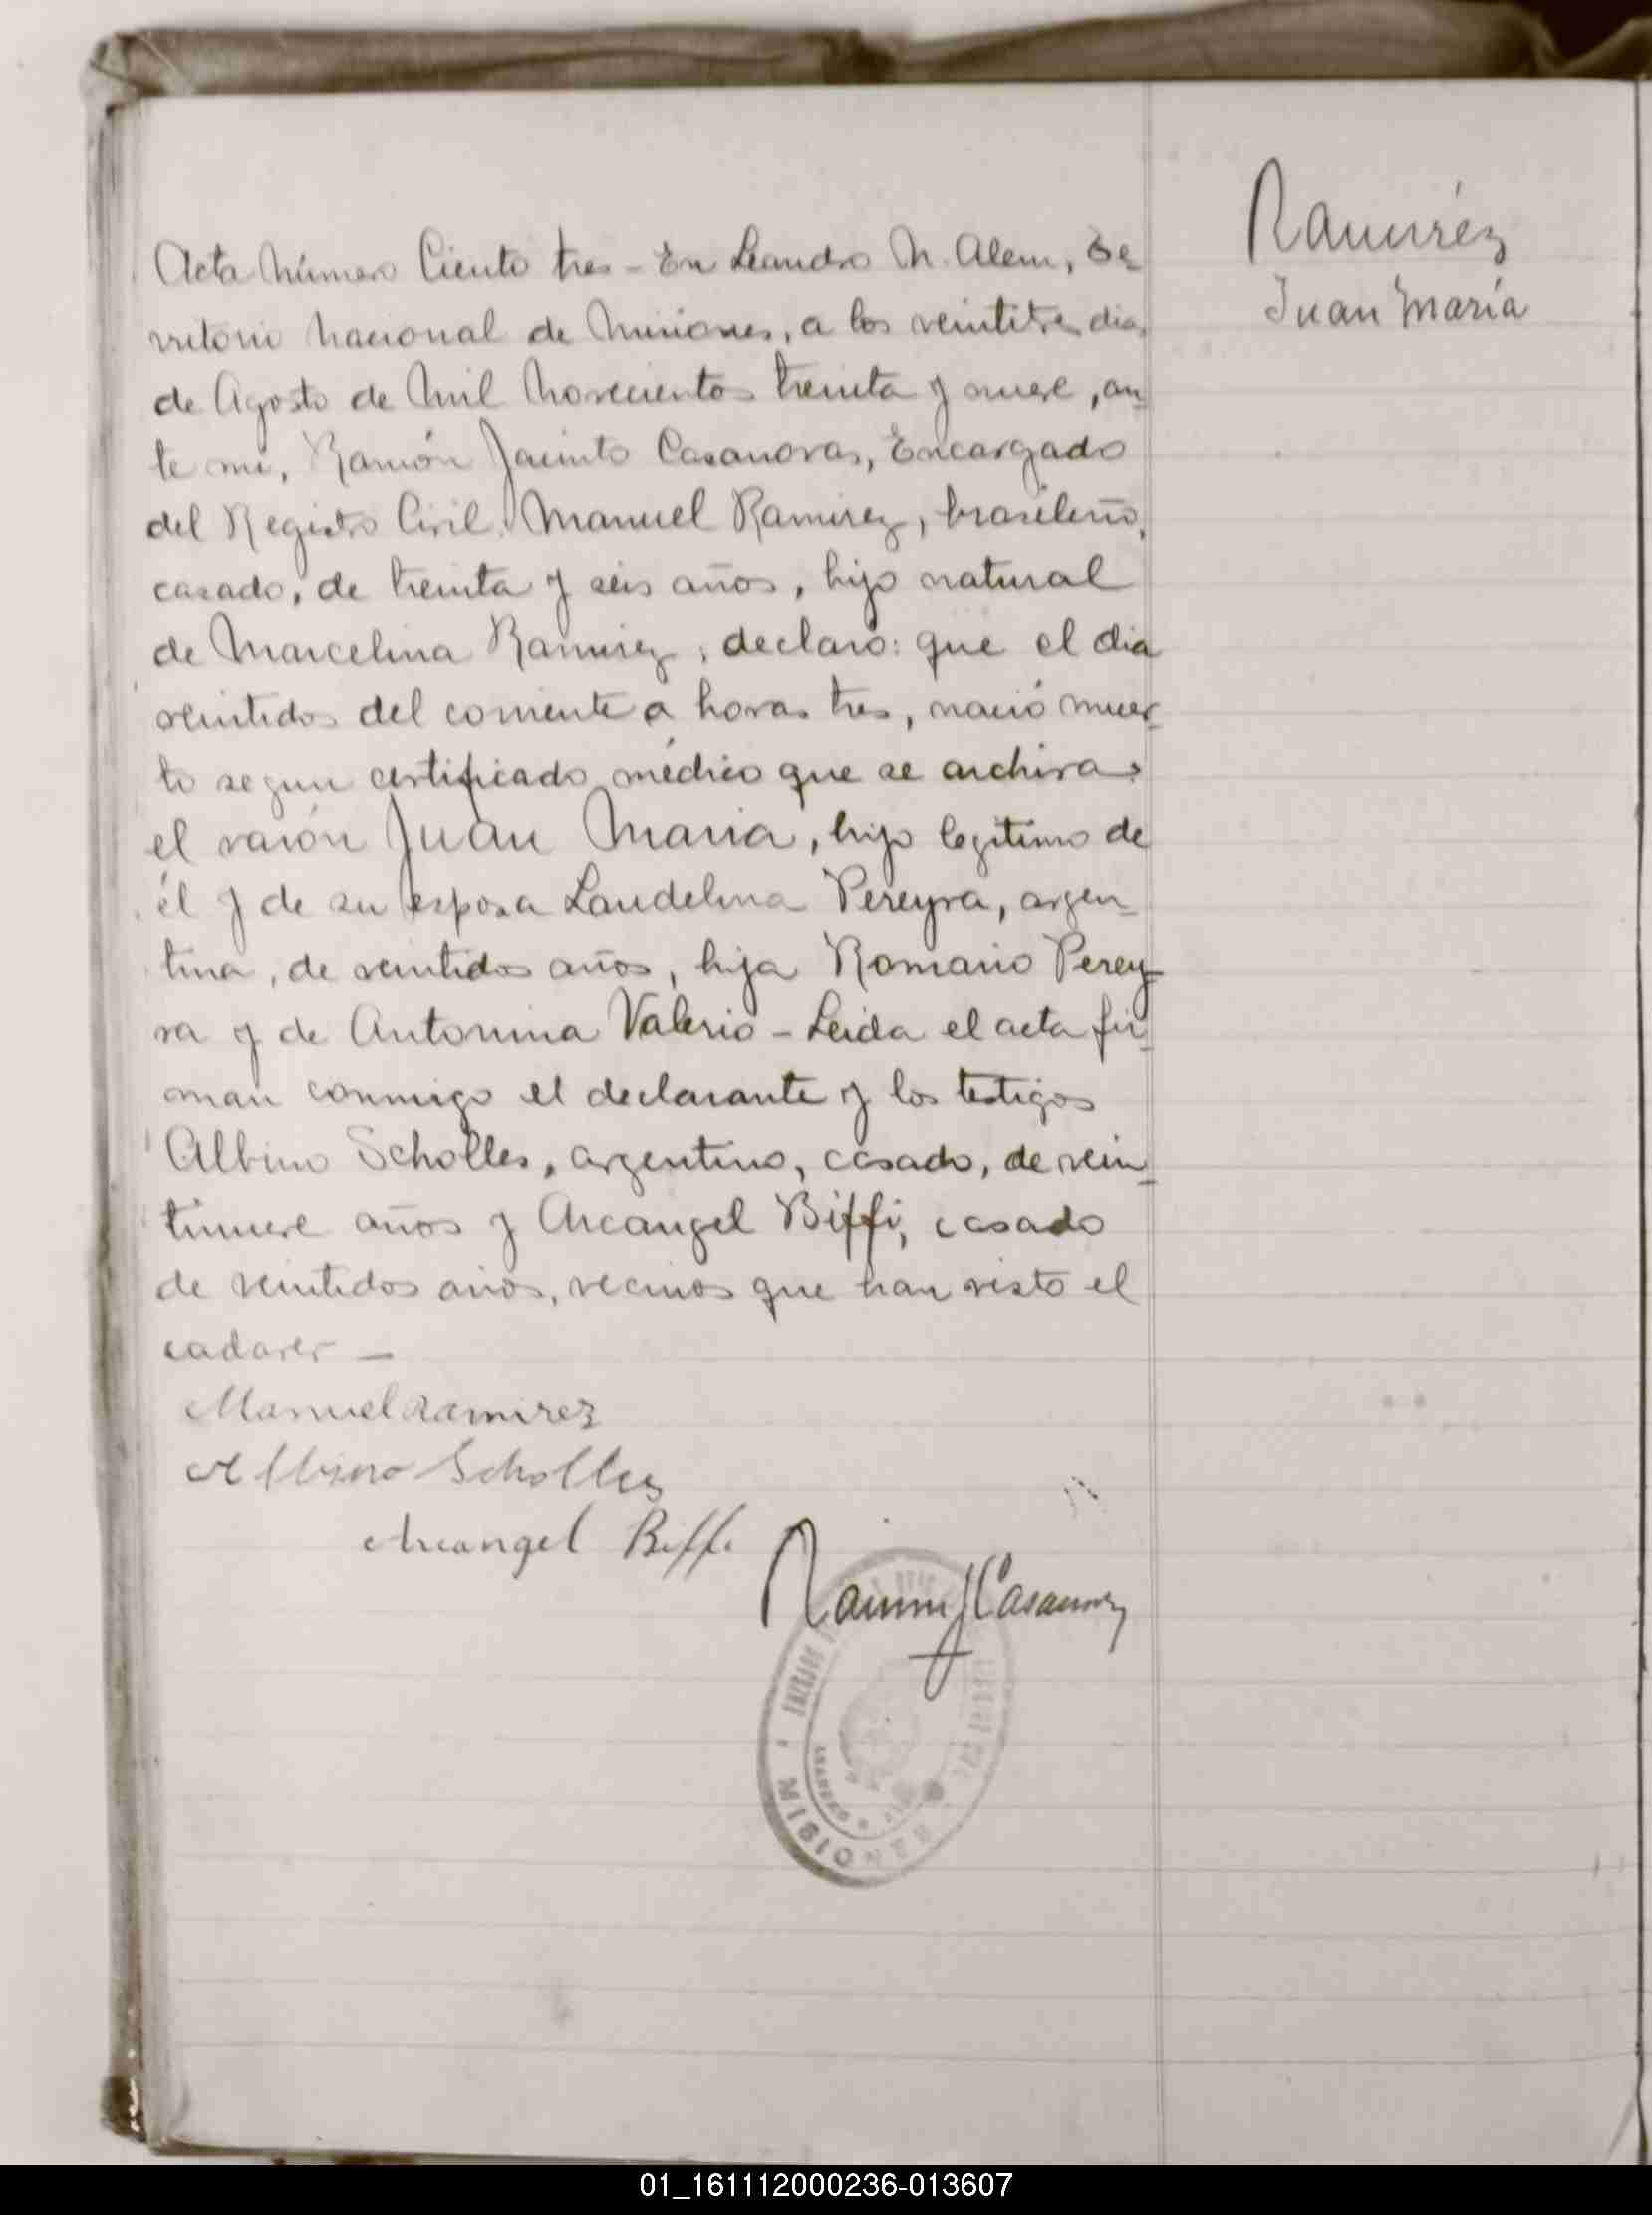 Ramírez
Juan María
Acta Número Ciento tres - En Leandro N. Alem, Te
rritorio Nacional de Misiones, a los veintitres dias
de Agosto de Mil Novecientos treinta y nueve, an
te mi, Ramón Jacinto Casanovas, Encargado
del Registro Civil. Manuel Ramirez, brasileño,
casado, de treinta y seis años, hijo natural
de Marcelina Ramirez, declaró: que el dia
veintidos del corriente a horas tres, nació muer-
to segun certificado médico que se archiva
el varón Juan Maria, hijo legitimo de
él y de su esposa Laudelina Pereyra, argen-
tina, de veintidos años, hija Romario Perey-
ra y de Antonina Valerio - Leida el acta fir-
man conmigo el declarante y los testigos
Albino Scholles, argentino, casado, de vein-
tinueve años y Arcangel Biffi, casado
de veintidos años, vecinos que han visto el
cadaver -
Manuel Ramirez
Albino Scholles
Arcangel Biffi
Ramon J Casanovas
MISIONES
01_161112000236-013607